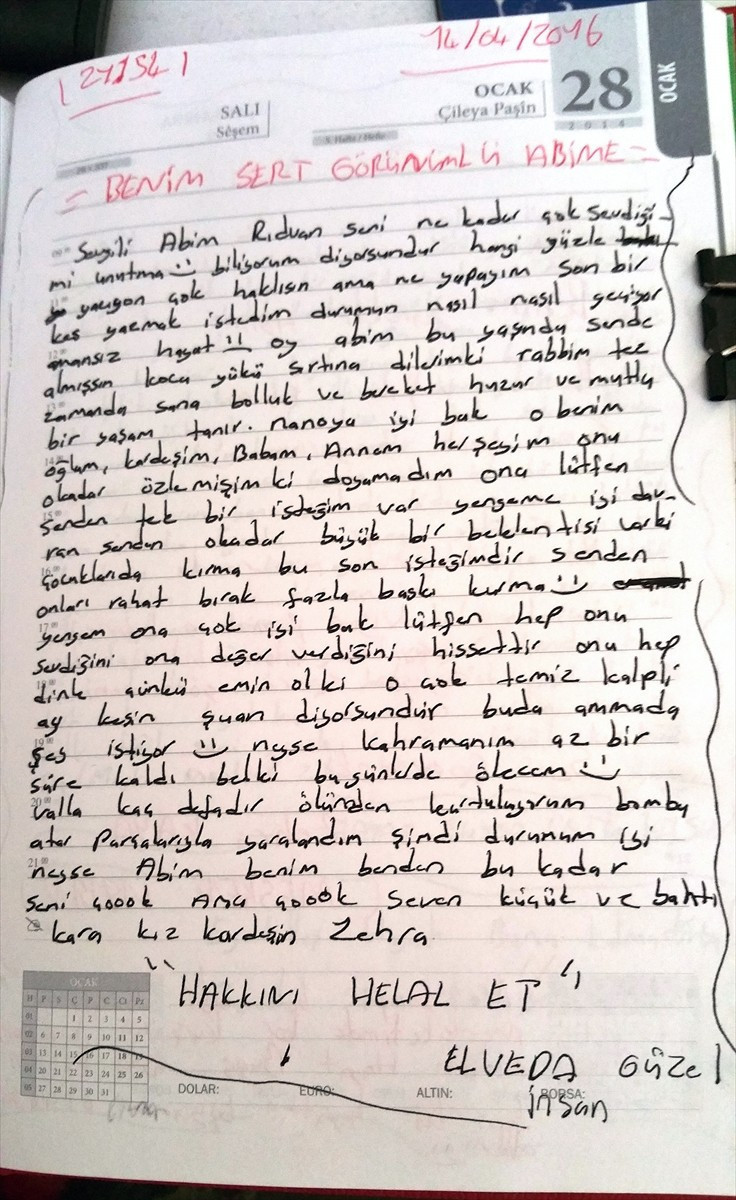 21:54
14/04/2016
SALI
Sêşem
OCAK
Çileya Paşîn
28
2014
OCAK
= BENİM SERT GÖRÜNÜMLÜ ABİME =
Sevgili Abim Rıdvan seni ne kadar çok sevdiği-
mi unutma biliyorum diyorsundur hangi yüzle
yazıyon çok haklısın ama ne yapayım son bir
kes yazmak istedim durumun nasıl nasıl geçiyor
amansız hayat oy abim bu yaşında sende
almışsın koca yükü sırtına dilerimki rabbim tez
zamanda sana bolluk ve bereket huzur ve mutlu
bir yaşam tanır. nanoya iyi bak o benim
oğlum, kardeşim, Babam, Annem herşeyim onu
okadar özlemişimki doyamadım ona lütfen
senden tek bir isteğim var yengeme iyi dav-
ran senden okadar büyük bir beklentisi varki
çocuklarıda kırma bu son isteğimdir senden
onları rahat bırak fazla baskı kurma
yengem ona çok iyi bak lütfen hep onu
sevdiğini ona değer verdiğini hissettir onu hep
dinle günkü emin olki o çok temiz kalpli
ay kesin şuan diyorsundur buda ammada
şeş istiyor neyse kahramanım az bir
süre kaldı belki bugünlerde ölecem
valla kaç defadır ölünden kurtuluyorum bomba
atar parsalarıyla yaralandım şimdi durumum iyi
neyse Abim benim benden bu kadar
seni çoook Ama çoook seven küçük ve bahtı
kara kız kardeşin Zehra
"HAKKINI HELAL ET"
ELVEDA Güzel
insan
OCAK
DOLAR: EURO: ALTIN: BORSA: